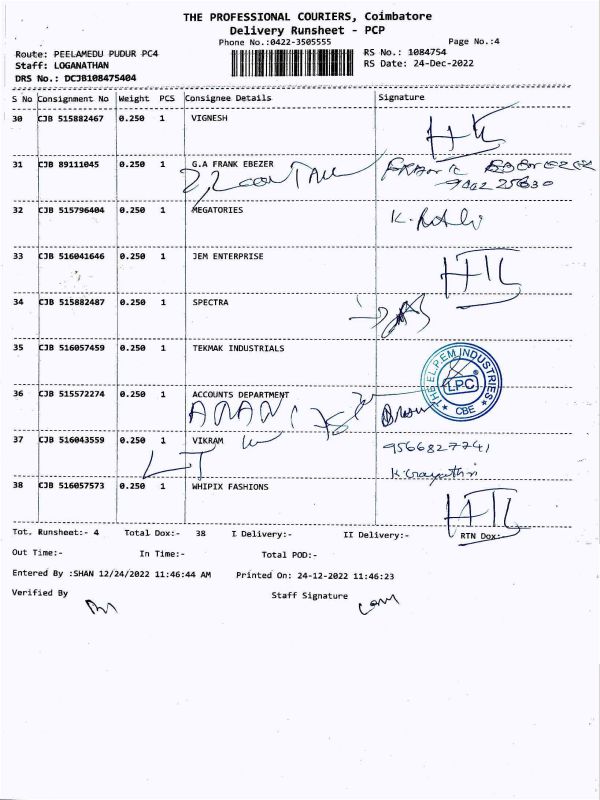 THE PROFESSIONAL COURIERS, Coimbatore
Delivery Runsheet - PCP
Phone No.:0422-3505555
Page No.:4
Route: PEELAMEDU PUDUR PC4
RS No.: 1084754
Staff: LOGANATHAN
RS Date: 24-Dec-2022
DRS No.: DCJB108475404
S No Consignment No Weight PCS Consignee Details Signature
30 CJB 515882467 0.250 1 VIGNESH
31 CJB 89111045 0.250 1 G.A FRANK EBEZER
32 CJB 515796404 0.250 1 MEGATORIES
33 CJB 516041646 0.250 1 JEM ENTERPRISE
34 CJB 515882487 0.250 1 SPECTRA
35 CJB 516057459 0.250 1 TEKMAK INDUSTRIALS
THE EL.P.EM INDUSTRIES
LPC
CBE
36 CJB 515572274 0.250 1 ACCOUNTS DEPARTMENT
37 CJB 516043559 0.250 1 VIKRAM
9566827741
38 CJB 516057573 0.250 1 WHIPIX FASHIONS
Tot. Runsheet:- 4 Total Dox:- 38 I Delivery:- II Delivery:- RTN Dox:-
Out Time:- In Time:- Total POD:-
Entered By :SHAN 12/24/2022 11:46:44 AM Printed On: 24-12-2022 11:46:23
Verified By Staff Signature